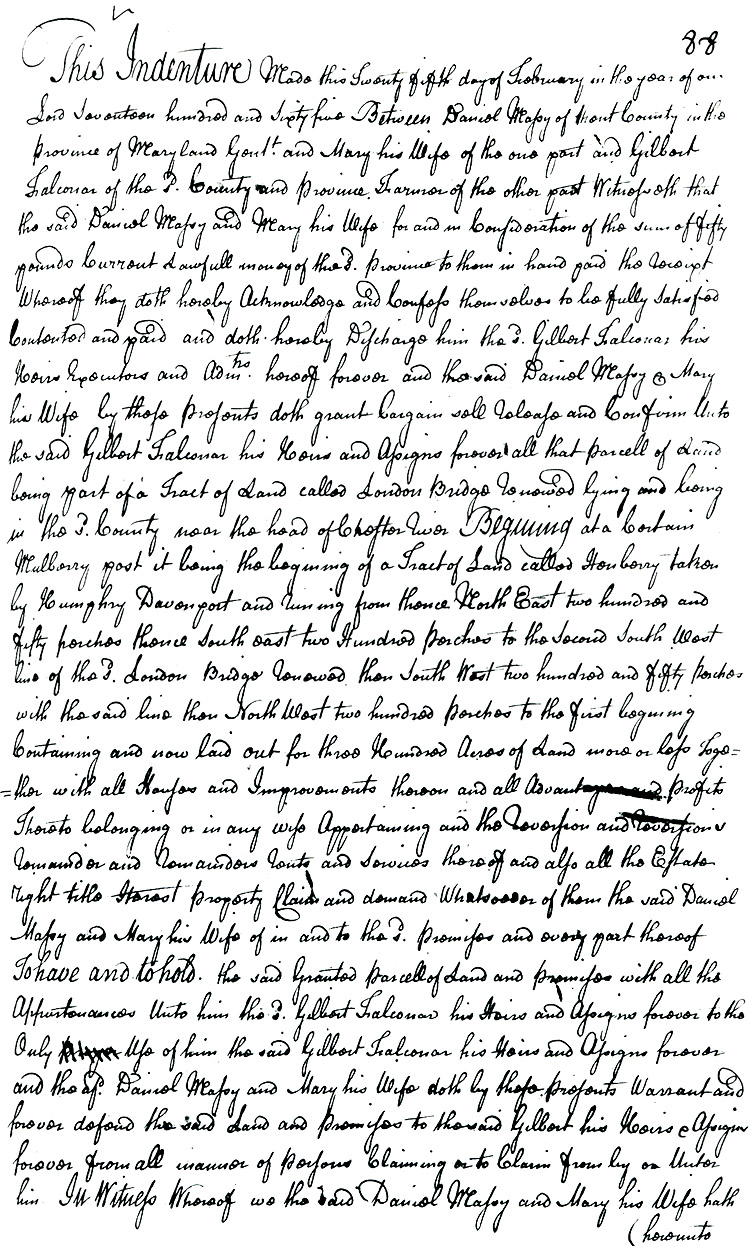 88
This Indenture Made this Twenty fifth day of February in the year of our
Lord Seventeen hundred and Sixty five Between Daniel Massy of Kent County in the
province of Maryland Gent. and Mary his Wife of the one part and Gilbert
Falconar of the sd. County and province Farmer of the other part Witnesseth that
the said Daniel Massy and Mary his Wife for and in Consideration of the sum of fifty
pounds Current Lawfull money of the sd. province to them in hand paid the receipt
Whereof they doth hereby Acknowledge and Confess themselves to be fully satisfied
Contented and paid and doth hereby Discharge him the sd. Gilbert Falconar his
Heirs Executors and Admrs. hereof forever and the said Daniel Massy & Mary
his Wife by these presents doth grant bargain sell release and Confirm Unto
the said Gilbert Falconar his Heirs and Assigns forever all that parcell of Land
being part of a Tract of Land called London Bridge renewed lying and being
in the sd. County near the head of Chester river Begining at a Certain
Mulberry post it being the begening of a Tract of Land called Henberry taken
by Humphry Davenport and runing from thence North East two hundred and
fifty perches thence South east two Hundred perches to the Second South West
line of the sd. London Bridge renewed then South West two hundred and fifty perches
with the said line then North West two hundred perches to the first begening
Containing and now laid out for three Hundred Acres of Land more or less Toge=
=ther with all Houses and Improvements thereon and all Advant profits
Thereto belonging or in any wise Appertaining and the reversion and reversions
remainder and remainders rents and Services thereof and also all the Estate
right title Iterest property Claim and demand Whatsoever of them the said Daniel
Massy and Mary his Wife of in and to the sd. premises and every part thereof
To have and to hold. the said Granted parcell of Land and premises with all the
Appurtenances Unto him the sd. Gilbert Falconar his Heirs and Assigns forever to the
Only Use of him the said Gilbert Falconar his Heirs and Assigns forever
and the Daniel Massy and Mary his Wife doth by these presents Warrant and
forever defend the said Land and premises to the said Gilbert his Heirs & Assigns
forever from all manner of persons Claiming or to Claim from by or Unter
him In Witness Whereof we the said Daniel Massy and Mary his Wife hath
(hereunto